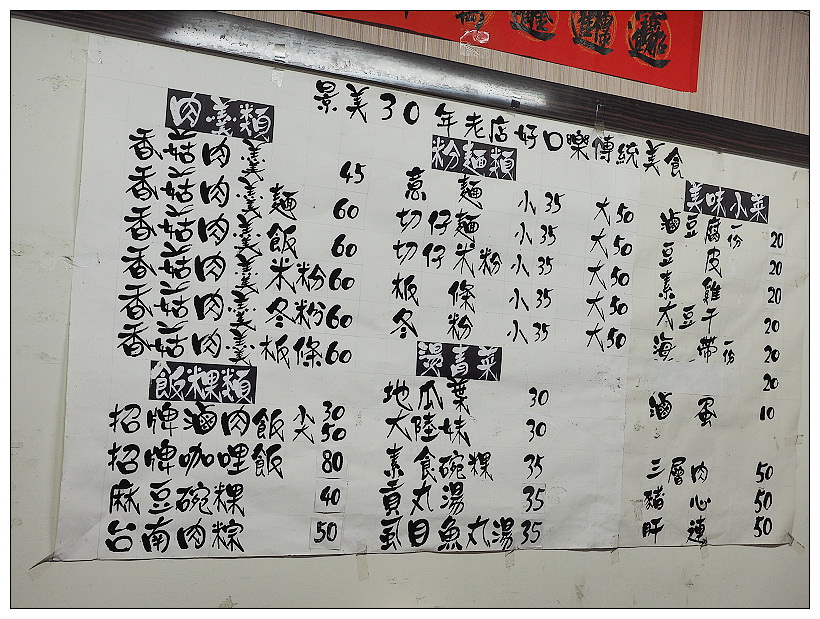 景美30年老店好口樂傳統美食
肉羹類
香菇肉羹 45
香菇肉羹麵 60
香菇肉羹飯 60
香菇肉羹米粉 60
香菇肉羹冬粉 60
香菇肉羹板條 60
飯粿類
招牌滷肉飯 小30 大50
招牌咖哩飯 80
麻豆碗粿 40
台南肉粽 50
粉麵類
意麵 小35 大50
切仔麵 小35 大50
切仔米粉 小35 大50
板條 小35 大50
冬粉 小35 大50
燙青菜
地瓜葉 30
大陸妹 30
素食碗粿 35
貢丸湯 35
虱目魚丸湯 35
美味小菜
滷豆腐一份 20
豆皮 20
素雞 20
大豆干 20
海帶一份 20
20
滷蛋 10
三層肉 50
豬心 50
肝連 50